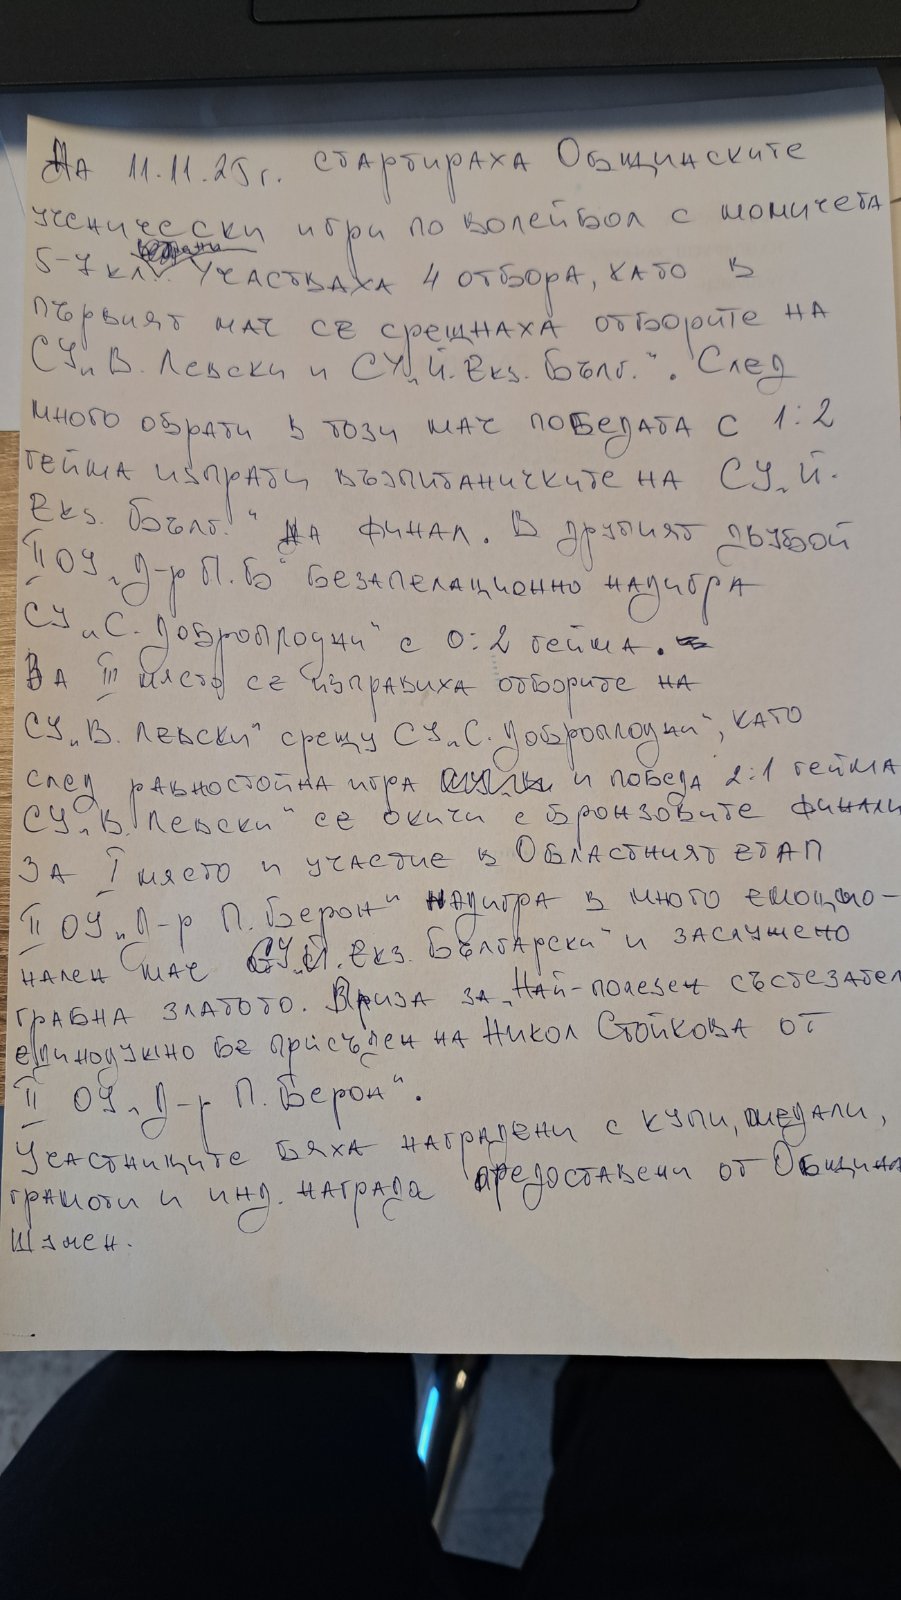 На 11.11.25г. стартираха Общинските
ученически игри по волейбол с момичета
5-7 кл. Участваха 4 отбора, като в
първият мач се срещнаха отборите на
СУ„В. Левски и СУ„Й. Екз. Бълг.“. След
много обрати в този мач победата с 1:2
гейма изпрати възпитаничките на СУ„Й.
Екз. Бълг.“ на финал. В другият двубой
II ОУ „Д-р П.Б“ безапелационно надигра
СУ „С. Доброплодни“ с 0:2 гейма.
За III място се изправиха отборите на
СУ„В. Левски“ срещу СУ„С. Доброплодни“, като
след равностойна игра и победа 2:1 гейма
СУ„В. Левски“ се окичи с бронзовите финали
За I място и участие в Областният етап
II ОУ„Д-р П. Берон“ надигра в много емоцио-
нален мач СУ„Й. Екз. Български“ и заслужено
грабна златото. Приза за „Най-полезен състезател
единодушно бе присъден на Никол Стойкова от
II ОУ „Д-р П. Берон“.
Участниците бяха наградени с купи, медали,
грамоти и инд. награда предоставени от Община
Шумен.